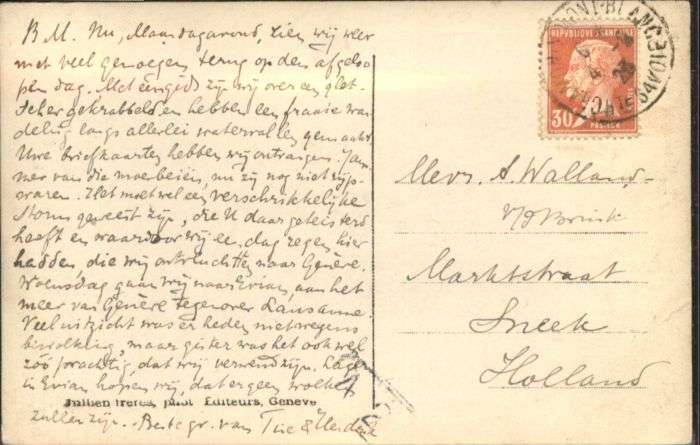 B.M. Nu, Maandagavond, zien wij weer
met veel genoegen terug op den afgeloo-
pen dag. Met één gids zijn wij over een glet-
scher gekrabbeld en hebben een fraaie wan-
deling langs allerlei watervallen gemaakt
Uwe briefkaarten hebben wij ontvangen. Jam-
mer van die moerbeien, nu zij nog niet rijp
waren. Het moet wel een verschrikkelijke
Storm geweest zijn, die U daar geteisterd
heeft en waardoor wij ee. dag regen hier
hadden, die wij ontvluchtten naar Genève.
Woensdag gaan wij naar Evian, aan het
meer van Genève tegenover Lausanne.
Veel uitzicht was er heden niet wegens
bewolking, maar gister was het ook wel
zóó prachtig, dat wij verwend zijn.
in Evian hopen wij, dat er geen wolken
Jullien frères, phot. Editeurs, Genève
zullen zijn. Beste gr. van
REPUBLIQUE FRANCAISE
30
POSTES
MONT-BLANC
HTE SAVOIE
Mevr. A. Walland-
v/d Brink
Marktstraat
Sneek
Holland